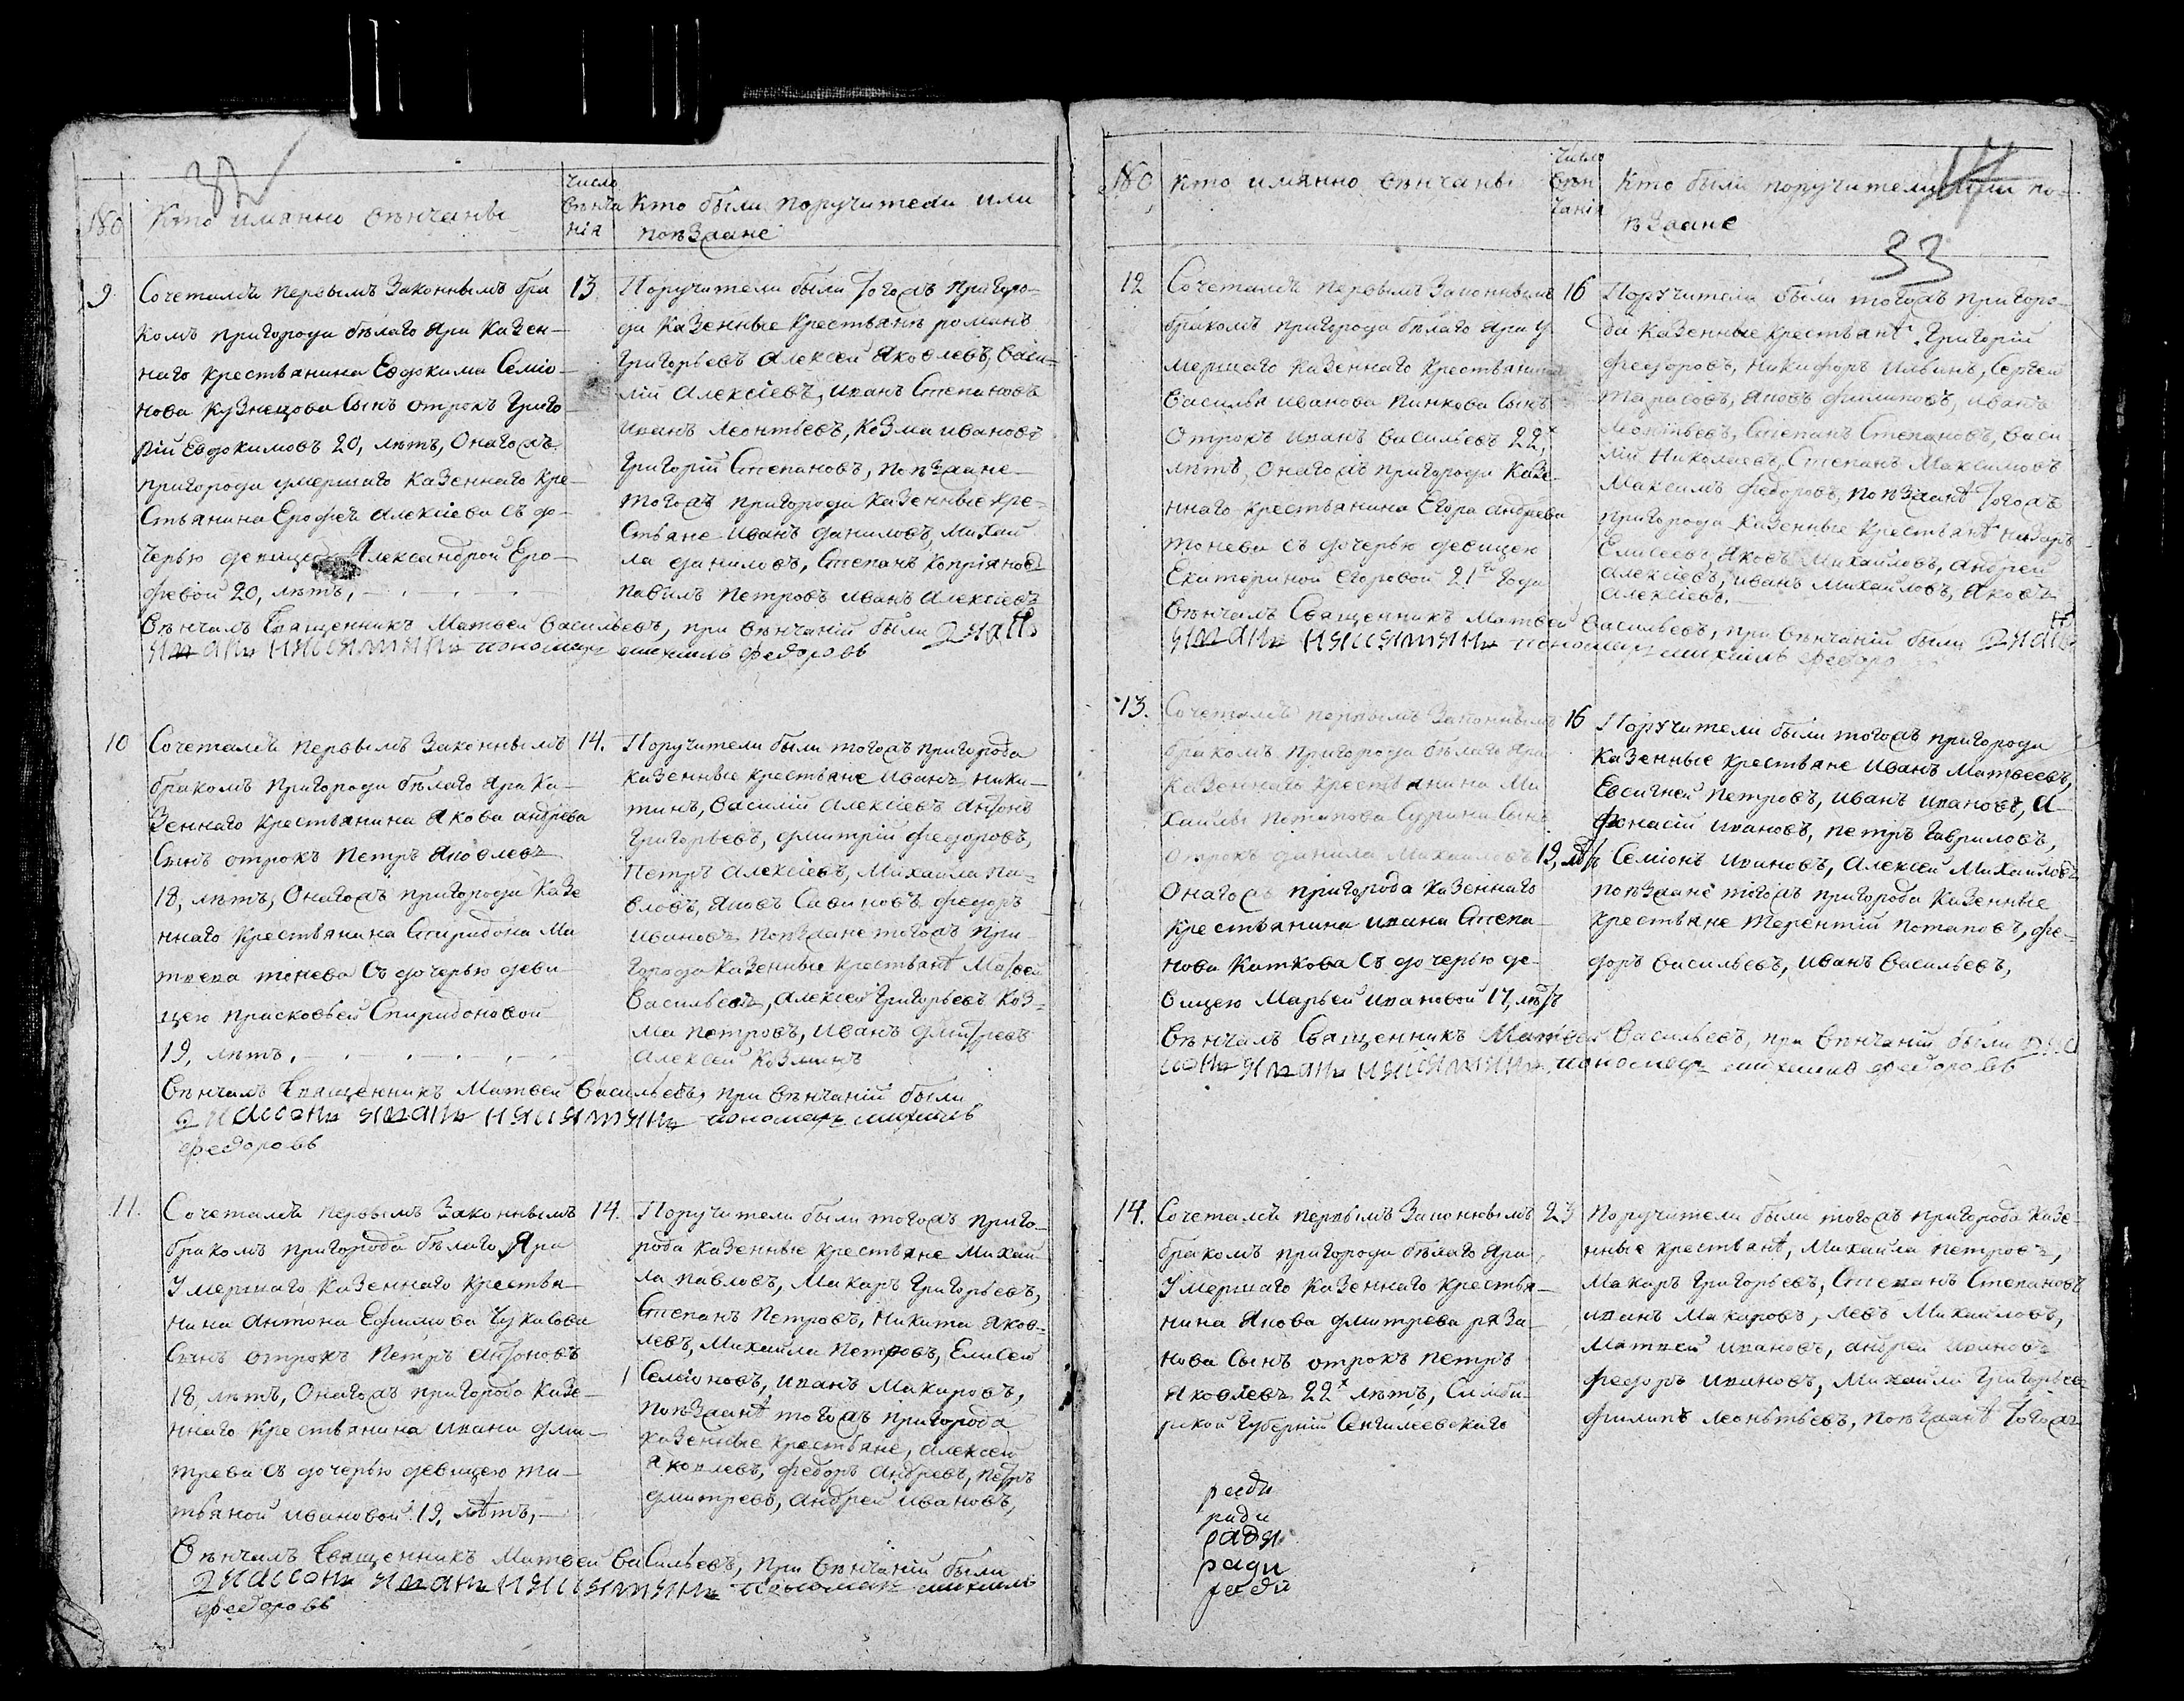 32
№
Кто имянно вѣнчаны
число
вѣнча
нія
Кто были поручители или
поѣздане
9.
Сочетался первымъ законнымъ бра
комъ пригорода бѣлаго яра казен-
наго крестьянина Евдокима Семіо-
нова Кузнецова сынъ отрокъ Григо
рій Евдокимовъ 20, лѣтъ, онагожъ
пригорода умершаго казеннаго кре-
стьянина Ерофея Алексіева съ до-
черью девицею Александрой Еро-
феевой 20, лѣтъ,
13
Поручители были тогожъ пригоро-
да казенные крестьянѣ романъ
Григорьевъ Алексеи Яковлевъ, Васи-
лій Алексіевъ, иванъ Степановъ
иванъ Леонтьевъ, Козма ивановъ
Григорій Степановъ, поѣздане
тогожъ пригорода казенные кре-
стьяне иванъ даниловъ, михаи
ла даниловъ, Степанъ Копріяновъ
павилъ петровъ иванъ Алексіевъ
Вѣнчалъ Священникъ Матвеи Васильевъ, при вѣнчаніи были
пономарь михаилъ федоровъ
10
Сочетался первымъ законнымъ
бракомъ пригорода бѣлаго яра ка-
зеннаго крестьянина Якова андрѣева
сынъ отрокъ петръ Яковлевъ
18, лѣтъ, онагожъ пригорода казе
ннаго крестьянина Спиридона Ма
твеева тонева съ дочерью деви
цею прасковьей Спиридоновой
19, лѣтъ,
14.
Поручители были тогожъ пригорода
казенные крестьяне иванъ ники-
тинъ, Василіи Алексіевъ антонъ
Григорьевъ, дмитрій федоровъ,
петръ Алексіевъ, михаила па-
вловъ, Яковъ Савиновъ федоръ
ивановъ поѣздане тогожъ при
города казенные крестьянѣ Матвеи
Васильевъ, алексеи Григорьевъ Коз-
ма петровъ, иванъ дмитревъ
алексеи Козминъ
Вѣнчалъ Священникъ Матвеи Васильевъ, при вѣнчаніи были
пономарь михаилъ
федоровъ
11.
Сочетался первымъ законнымъ
бракомъ пригорода бѣлаго Яра
умершаго казеннаго крестья-
нина антона Ефимова Чукасова
сынъ отрокъ петръ антоновъ
18, лѣтъ, онагожъ пригорода казе-
ннаго крестьянина ивана дми-
трева съ дочерью девицею та-
тьяной ивановой 19, лѣтъ,
14.
Поручители были тогожъ приго-
рода казенные крестьяне михаи
ла павловъ, Макаръ Григорьевъ,
Степанъ петровъ, никита яков-
левъ, михаила петровъ, Елисеи
Семіоновъ, иванъ Макаровъ,
поѣзданѣ тогожъ пригорода
казенные крестьяне, алексеи
Яковлевъ, федоръ андревъ, петръ
дмитревъ, андреи ивановъ,
Вѣнчалъ Священникъ Матвеи Васильевъ, при вѣнчаніи были
пономарь михаилъ
федоровъ
17
№
Кто имянно вѣнчаны
число
вѣн
чанія
Кто были поручители или по-
ѣздане
33
12
Сочетался первымъ законнымъ
бракомъ пригорода бѣлаго яра у
мершаго казеннаго крестьянина
Василья иванова пинкова сынъ
отрокъ иванъ Васильевъ 22,х
лѣтъ, онагожъ пригорода казе-
ннаго крестьянина Егора андрева
тонева съ дочерью девицею
Екатериной Егоровой 21го года
16
Поручители были тогожъ пригоро-
да казенные крестьянѣ Григорій
федоровъ, никифоръ ильинъ, Сергеи
тарасовъ, Яковъ филиповъ, иванъ
Леонтьевъ, Степанъ Степановъ, Васи
лій николаевъ, Степанъ Максимовъ
Максимъ федоровъ, поѣзданѣ тогожъ
пригорода казенные крестьянѣ назаръ
Елисеевъ, яковъ михаиловъ, андреи
алексіевъ, иванъ михаиловъ, яковъ
алексіевъ.
Вѣнчалъ Священникъ Матвеи Васильевъ, при вѣнчаніи были
пономарь михаилъ федоро
13.
Сочетался первымъ законнымъ
бракомъ пригорода бѣлаго яра
казеннаго крестьянина Ми
хаилы потапова Сурина сынъ
отрокъ данила Михаиловъ 19, лѣтъ
онагожъ пригорода казеннаго
крестьянина ивана Степа-
нова Каткова съ дочерью де-
вицею Марьей ивановой 17, лѣтъ
16
Поручители были тогожъ пригорода
казенные крестьяне иванъ Матвеевъ,
Евсигней петровъ, иванъ ивановъ, а
фонасій ивановъ, петръ Гавриловъ,
Семіонъ ивановъ, алексеи Михаиловъ
поѣздане тогожъ пригорода казенные
крестьяне терентій потаповъ, фе-
доръ Васильевъ, иванъ Васильевъ,
Вѣнчалъ Священникъ Матвеи Васильевъ, при вѣнчаніи были
пономарь михаилъ федоровъ
14.
Сочетался первымъ законнымъ
бракомъ пригорода бѣлаго яра
умершаго казеннаго крестья-
нина Якова дмитрева ряза-
нова сынъ отрокъ петръ
Яковлевъ 22х лѣтъ, Симби-
рской губерніи Сенгилеевскаго
23
Поручители были тогожъ пригорода казе-
нные крестьянѣ, Михаила петровъ,
Макаръ Григорьевъ, Степанъ Степановъ
иванъ Макаровъ, левъ Михаиловъ,
Матвеи ивановъ, андреи ивановъ
федоръ ивановъ, Михаила Григорьевъ
филипъ леонтьевъ, поѣзданѣ тогожъ
ради
ради
ради
ради
ради